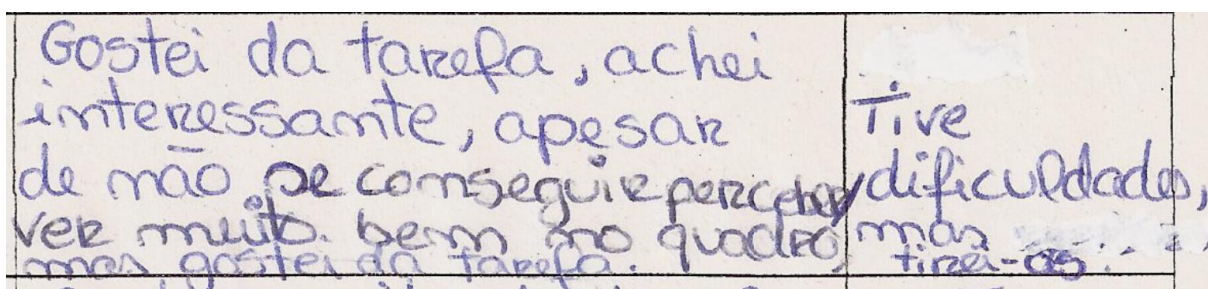 Gostei da tarefa, achei
interessante, apesar
de não se conseguir perceber/
ver muito bem no quadro,
mas gostei da tarefa.
Tive
dificuldades,
mas
tirei-as.